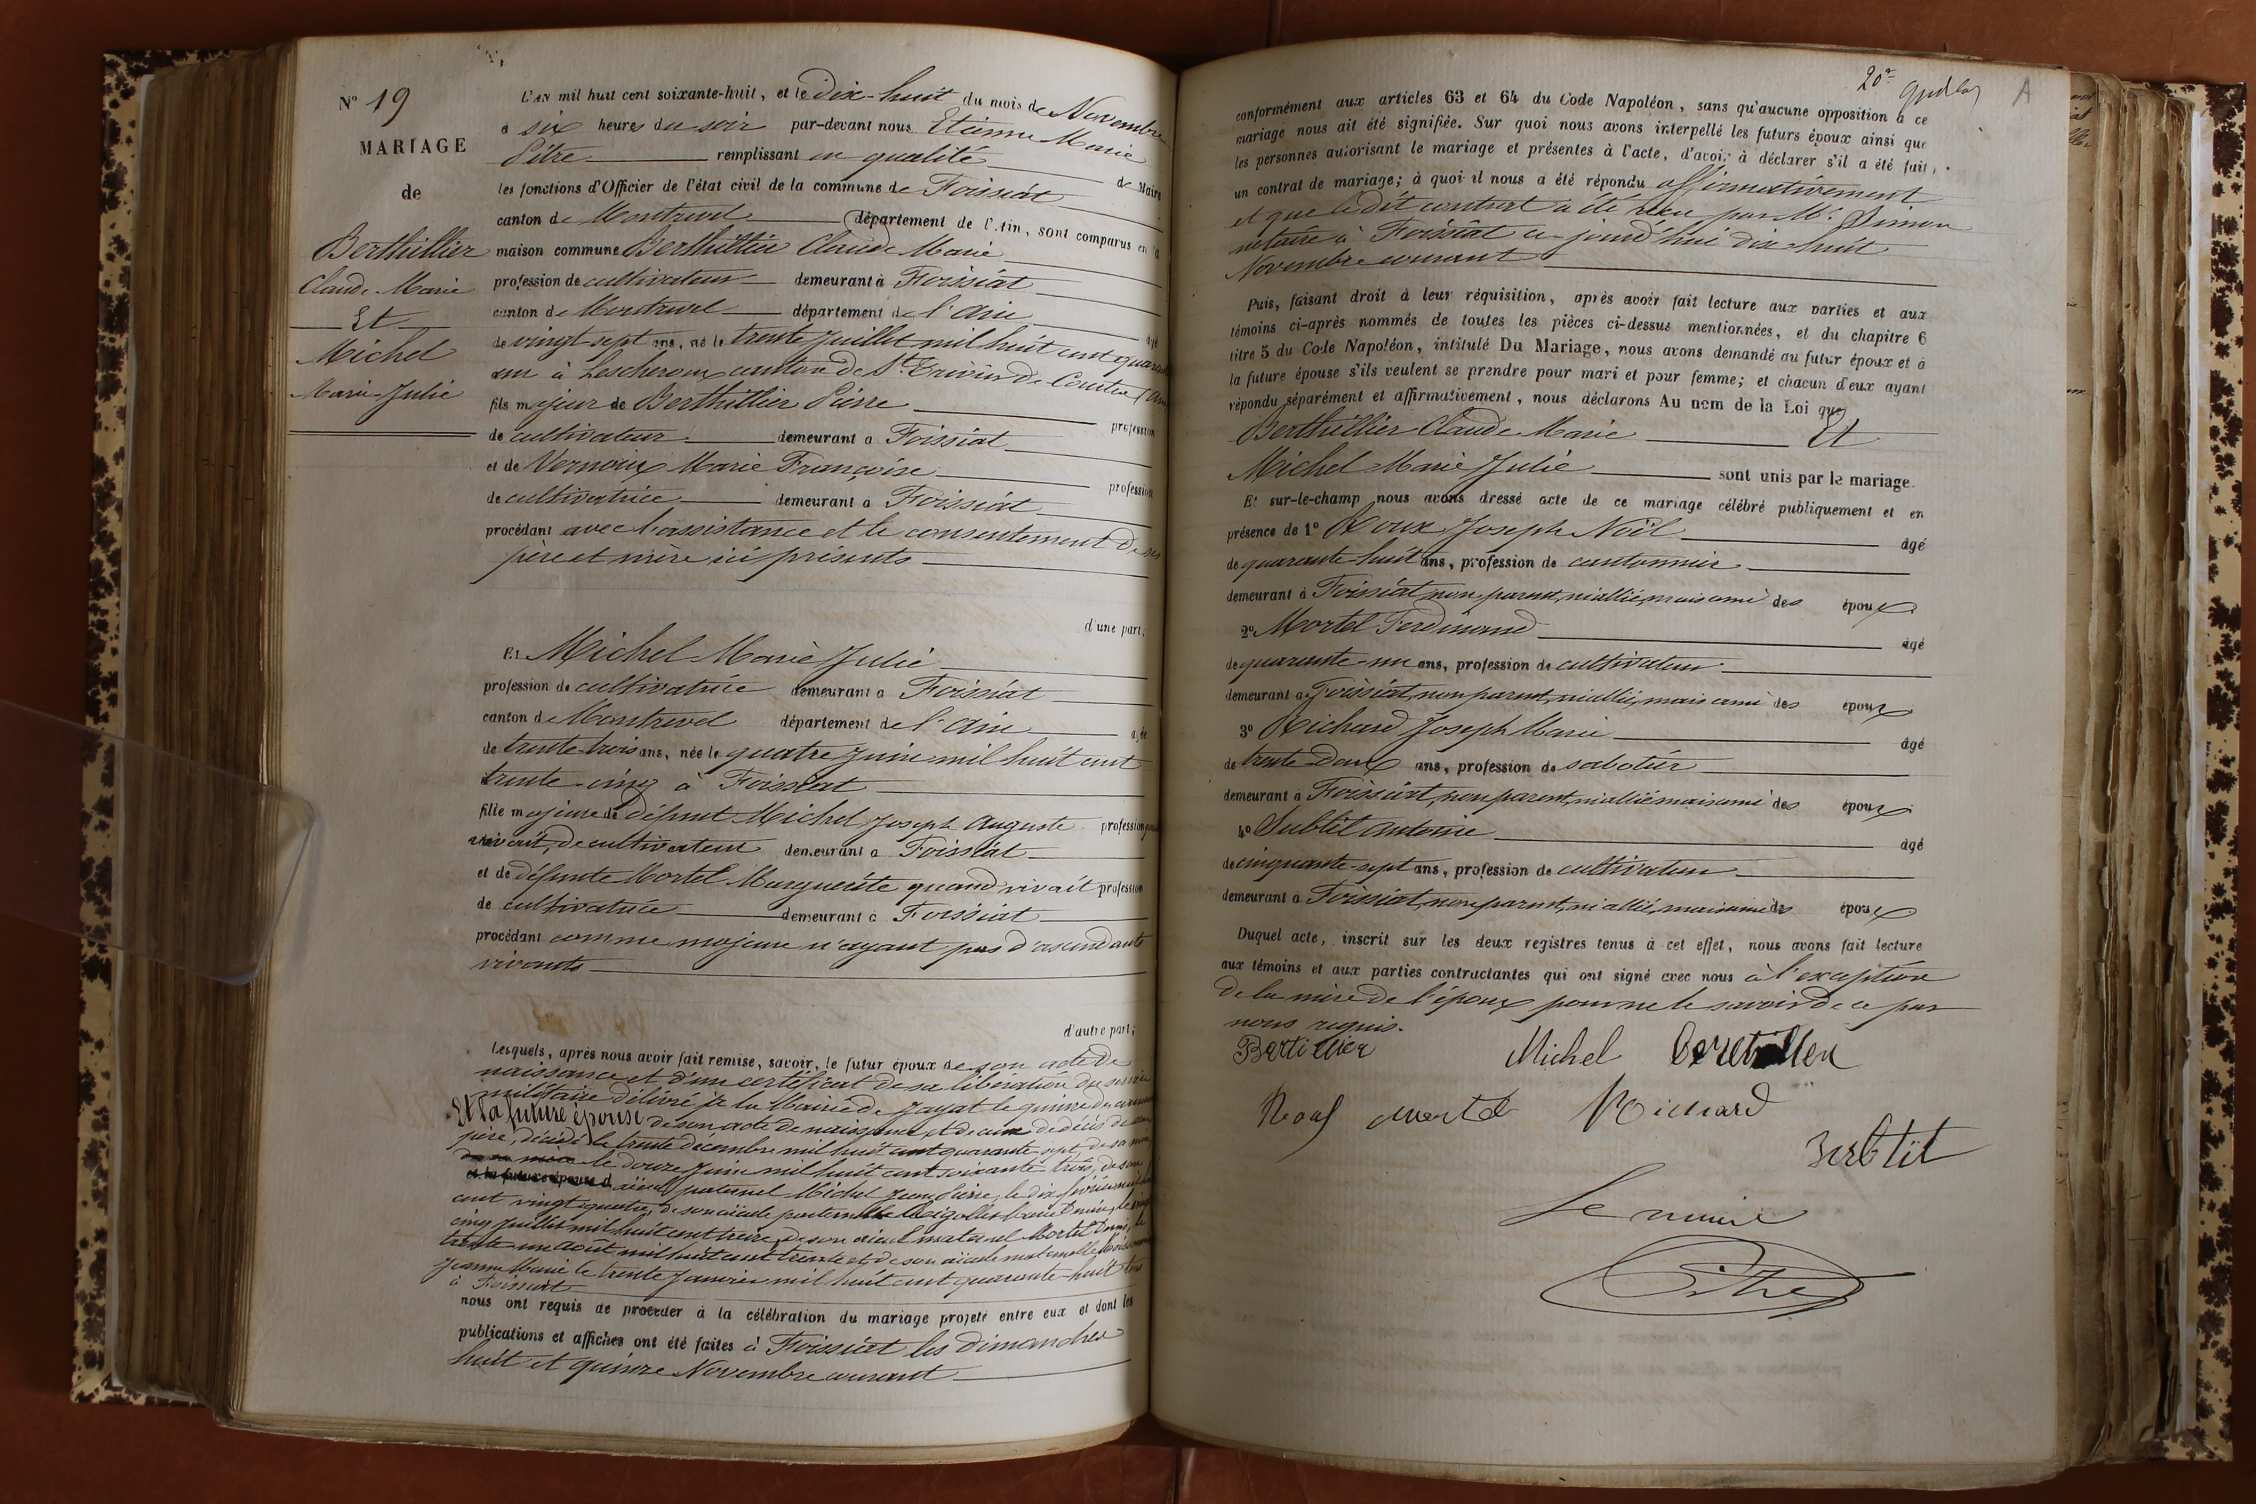 N° 19
MARIAGE
de
Berthillier
Claude Marie
Et
Michel
Marie Julie
L'AN mil huit cent soixante-huit, et le dix-huit du mois de Novembre
a six heures du soir par-devant nous Etienne Marie
Pitre remplissant en qualité de Maire
les fonctions d'Officier de l'état civil de la commune de Foissiat
canton de Montrevel département de l'Ain, sont comparus en la
maison commune Berthillier Claude Marie
profession de cultivateur demeurant à Foissiat
canton de Montrevel département de l'Ain
âgé
de vingt-sept ans, né le trente Juillet mil huit cent quarante
un à Lescheroux canton de St. Trivier de Courtes (Ain
fils majeur de Berthillier Pierre profession
de cultivateur demeurant a Foissiat
et de Vernoux Marie Françoise profession
de cultivatrice demeurant a Foissiat
procédant avec l'assistance et le consentement de ses
père et mère ici présents
d'une part;
Et Michel Marie Julie
profession de cultivatrice demeurant a Foissiat
canton de Montrevel département de l'Ain agée
de trente-trois ans, née le quatre Juin mil huit cent
trente-cinq à Foissiat
fille majeure de défunt Michel Joseph Auguste profession quand
vivait, de cultivateur demeurant a Foissiat
et de défunte Mortel Marguerite quand vivait profession
de cultivatrice demeurant a Foissiat
procédant comme majeure n'ayant pas d'ascendants
vivants
d'autre part;
Lesquels, après nous avoir fait remise, savoir, le futur époux de son acte de
naissance et d'un certificat de sa libération du service
militaire délivré à la Mairie de Jayat le quinze du courant
Et la future épouse de son acte de naissance et de ceux de décès de son
père, décédé le trente décembre mil huit cent quarante sept, de sa mère
le douze Juin mil huit cent soixante trois, de son
aïeul paternel Michel Jean Pierre, le dix février mil huit
cent vingt quatre, de son aïeule paternelle Marie Denise, le vingt
cinq Juillet mil huit cent treize, de son aïeul maternel Mortel Denis, le
trente un Août mil huit cent trente et de son aïeule maternelle
Jeanne Marie le trente Janvier mil huit cent quarante-huit tous
à Foissiat
nous ont requis de procéder à la célébration du mariage projeté entre eux et dont les
publications et affiches ont été faites à Foissiat les dimanches
huit et quinze Novembre courant
20e
A
conformément aux articles 63 et 64 du Code Napoléon, sans qu'aucune opposition à ce
mariage nous ait été signifiée. Sur quoi nous avons interpellé les futurs époux ainsi que
les personnes autorisant le mariage et présentes à l'acte, d'avoir à déclarer s'il a été fait,
un contrat de mariage; à quoi il nous a été répondu affirmativement
et que le dit contrat a été reçu par Me. Simon
notaire à Foissiat ce jourd'hui dix-huit
Novembre courant
Puis, faisant droit à leur réquisition, après avoir fait lecture aux parties et aux
témoins ci-après nommés de toutes les pièces ci-dessus mentionnées, et du chapitre 6
titre 5 du Code Napoléon, intitulé Du Mariage, nous avons demandé au futur époux et à
la future épouse s'ils veulent se prendre pour mari et pour femme; et chacun d'eux ayant
répondu séparément et affirmativement, nous déclarons Au nom de la Loi que
Berthillier Claude Marie Et
Michel Marie Julie sont unis par le mariage.
Et sur-le-champ nous avons dressé acte de ce mariage célébré publiquement et en
présence de 1° Roux Joseph Noël âgé
de quarante-huit ans, profession de cantonnier
demeurant à Foissiat, non parent, ni allié, mais ami des époux
2° Mortel Ferdinand âgé
de quarante-un ans, profession de cultivateur
demeurant à Foissiat, non parent, ni allié, mais ami des époux
3° Richard Joseph Marie âgé
de trente-deux ans, profession de sabotier
demeurant à Foissiat, non parent, ni allié mais ami des époux
4° Sublet Antoine âgé
de cinquante-sept ans, profession de cultivateur
demeurant à Foissiat, non parent, ni allié, mais ami des époux
Duquel acte, inscrit sur les deux registres tenus à cet effet, nous avons fait lecture
aux témoins et aux parties contractantes qui ont signé avec nous à l'exception
de la mère de l'époux pour ne le savoir de ce par
nous requis.
Bertillier Michel
Richard
Le maire
Pitre